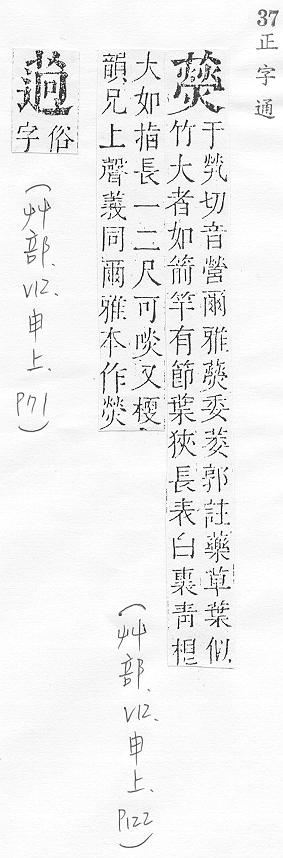 37正字通
藀
于煢切音營爾雅藀委萎郭註藥草葉似
竹大者如箭竿有節葉狹長表白裏青根
大如指長一二尺可啖又梗
韻兄上聲義同爾雅本作熒
(艸部.V12.申上.P122)
俗
字
(艸部.V12.申上.P71)